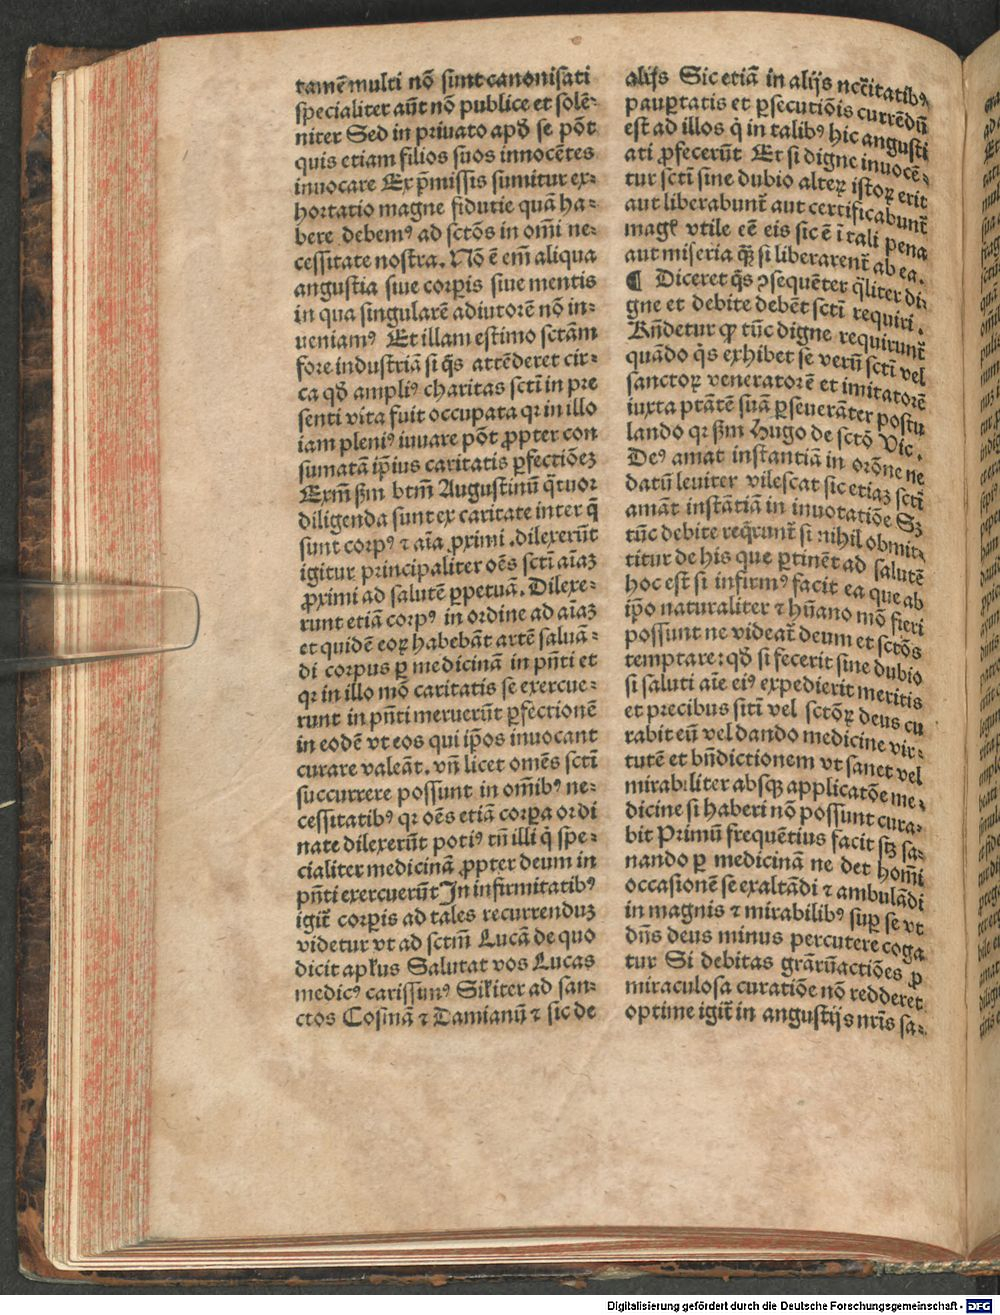 tamē multi nō sunt canonisati
specialiter aūt nō publice et solē⸗
niter Sed in priuato apđ se pōt
quis etiam filios suos innocētes
inuocare Ex p̄missis sumitur ex⸗
hortatio magne fidutie quā ha⸗
bere debemꝰ ad sctōs in om̄i ne⸗
cessitate nostra. Nō ē em̄ aliqua
angustia siue corꝑis siue mentis
in qua singularē adiutorē nō in⸗
ueniamꝰ Et illam estimo sctām
fore industriā si q̄s attēderet cir⸗
ca qđ ampliꝰ charitas sctī in pre
senti vita fuit occupata qꝛ in illo
iam pleniꝰ iuuare pōt ꝓpter con
sumatā ip̄ius caritatis ꝑfectiōeꝫ
Exm̄ ẜm btm̄ Augustinū q̄tuor
diligenda sunt ex caritate inter q̄
sunt corpꝰ ⁊ aīa ꝓximi .dilexerūt
igitur principaliter oēs sctī aīaꝫ
ꝓximi ad salutē ꝑpetuā. Dilexe⸗
runt etiā corpꝰ in ordine ad aīaꝫ
et quidē eoꝝ habebāt artē saluā⸗
di corpus ꝑ medicinā in pn̄ti et
qꝛ in illo mō caritatis se exercue⸗
runt in pn̄ti meruerūt ꝑfectionē
in eodē vt eos qui ip̄os inuocant
curare valeāt. vn̄ licet omēs sctī
succurrere possunt in om̄ibꝰ ne⸗
cessitatibꝰ qꝛ oēs etiā corꝑa ordi
nate dilexerūt potiꝰ tn̄ illi q̄ spe⸗
cialiter medicinā ꝓpter deum in
pn̄ti exercuerūt In infirmitatibꝰ
igit̄ corꝑis ad tales recurrenduꝫ
videtur vt ad sctm̄ Lucā de quo
dicit apłus Salutat vos Lucas
medicꝰ carissimꝰ Siłiter ad san⸗
ctos Cosmā ⁊ Damianū ⁊ sic de
alijs Sic etiā in alijs nccītatibꝰ
pauꝑtatis et ꝑsecutiōis currēdū
est ad illos q̄ in talibꝰ hic angusti
ati ꝓfecerūt Et si digne inuocē⸗
tur sctī sine dubio alteꝝ istoꝝ erit
aut liberabunt̄ aut certificabunt̄
magł vtile eē eis sic ē ī tali pena
aut miseria qꝫ̄ si liberarent̄ ab ea.
¶ Diceret q̄s ꝯsequēter q̄liter di⸗
gne et debite debēt sctī requiri.
Rn̄detur ꝙ tūc digne requirunt̄
quādo q̄s exhibet se verū sctī vel
sanctoꝝ veneratorē et imitatorē
iuxta ptātē suā ꝑseuerāter postu
lando qꝛ ẜm Hugo de sctō Vic.
Deꝰ amat instantiā in orōne ne
datū leuiter vilescat sic etiaꝫ sctī
amāt instātiā in inuotatiōe Sꝫ
tūc debite req̄runt̄ si nihil obmit⸗
titur de his que ꝑtinēt ad salutē
hoc est si infirmꝰ facit ea que ab
ip̄o naturaliter ⁊ hūano mō fieri
possunt ne videat̄ deum et sctōs
temptare: qđ si fecerit sine dubio
si saluti aīe eiꝰ expedierit meritis
et precibus sctī vel sctōꝝ deus cu
rabit eū vel dando medicine vir⸗
tutē et bn̄dictionem vt sanet vel
mirabiliter absqꝫ applicatōe me⸗
dicine si haberi nō possunt cura⸗
bit Primū frequētius facit sꝫ sa⸗
nando ꝑ medicinā ne det hom̄i
occasionē se exaltādi ⁊ ambulādi
in magnis ⁊ mirabilibꝰ suꝑ se vt
dn̄s deus minus percutere coga
tur Si debitas grārūactiōes ꝓ
miraculosa curatiōe nō redderet
optime igit̄ in angustijs nrīs sa⸗
Digitalisierung gefördert durch die Deutsche Forschungsgemeinschaft - DFG